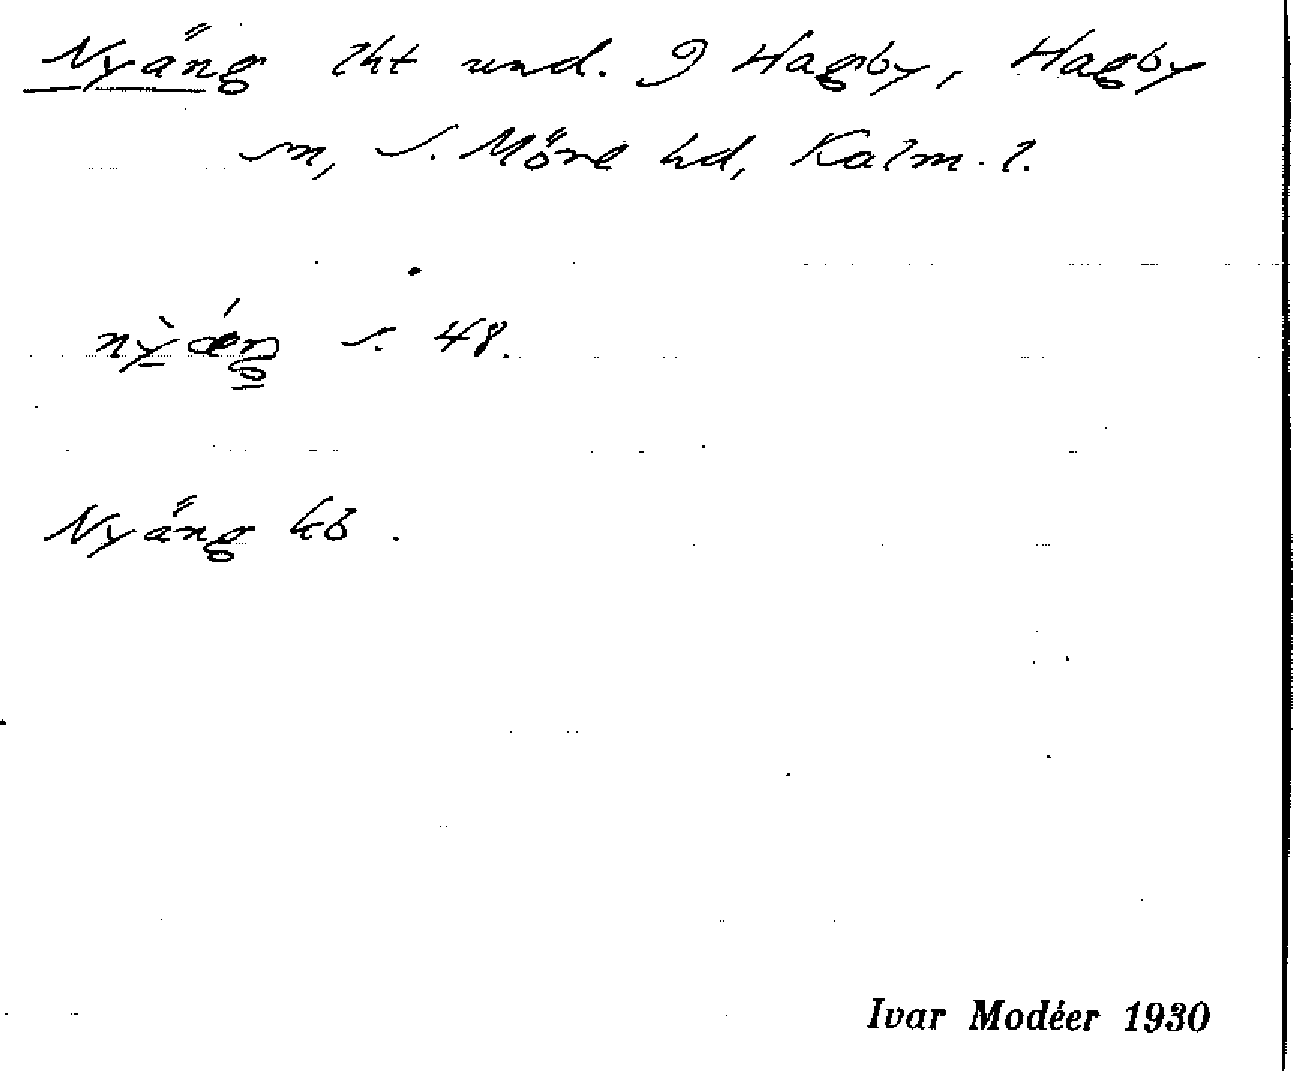 Nyäng lht und. 9 Hagby, Hagby
sn, S. Möre hd, Kalm. l.
nỳǽŋ s. 48.
Nyäng kb.
Ivar Modéer 1930